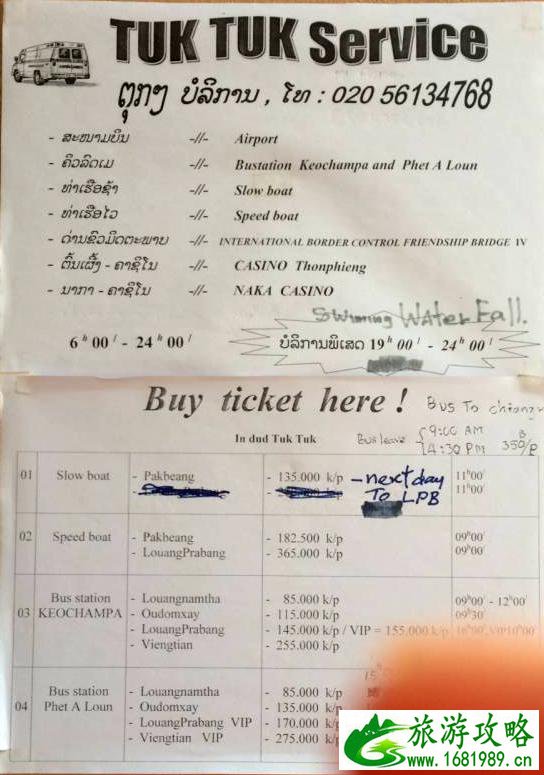 TUK TUK Service
ຕຸກໆ ບໍລິການ , ໂທ : 020 56134768
- ສະໜາມບິນ -//- Airport
- ຄິວລົດເມ -//- Bustation Keochampa and Phet A Loun
- ທ່າເຮືອຊ້າ -//- Slow boat
- ທ່າເຮືອໄວ -//- Speed boat
- ດ່ານຂົວມິດຕະພາບ -//- INTERNATIONAL BORDER CONTROL FRIENDSHIP BRIDGE IV
- ຕົ້ນເຜິ້ງ - ຄາຊິໂນ -//- CASINO Thonphieng
- ນາກາ - ຄາຊິໂນ -//- NAKA CASINO
Swimming WATER Fall.
6 h 00 / - 24 h 00 / ບໍລິການພິເສດ 19 h 00 / - 24 h 00 /
Buy ticket here !
Bus To
In dud Tuk Tuk
Bus leave { 9:00 AM
14:30 PM
350/P
B
01 Slow boat - Pakbeang - 135.000 k/p - next day 11h00'
To LPB 11h00'
02 Speed boat - Pakbeang - 182.500 k/p 09h00'
- LouangPrabang - 365.000 k/p 09h00'
03 Bus station KEOCHAMPA - Louangnamtha - 85.000 k/p 09h00' - 12h00'
- Oudomxay - 115.000 k/p 09h30'
- LouangPrabang - 145.000 k/p / VIP = 155.000 k/p 16h00',VIP10h00'
- Viengtian - 255.000 k/p
04 Bus station Phet A Loun - Louangnamtha - 85.000 k/p
- Oudomxay - 135.000
- LouangPrabang VIP - 170.000
- Viengtian VIP - 275.000
旅游攻略
www.1681989.cn